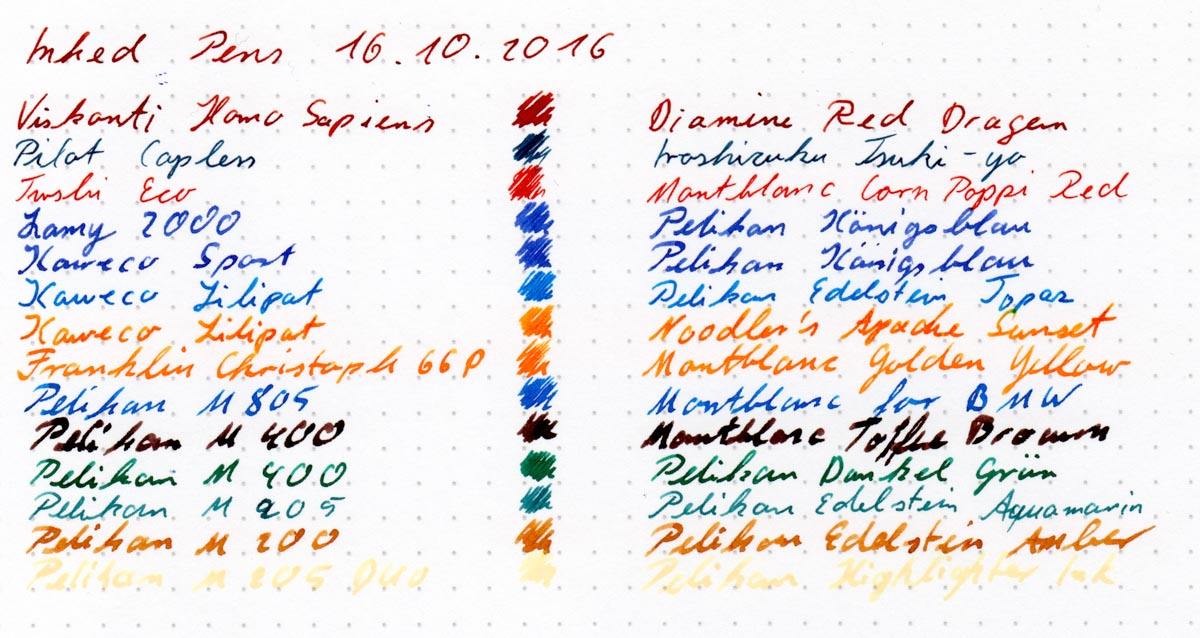 Inked Pens 16.10.2016
Viskonti Homo Sapiens Diamine Red Dragon
Pilot Capless Iroshizuku Tsuki-yo
Twsbi Eco Montblanc Corn Poppi Red
Lamy 2000 Pelikan Königsblau
Kaweco Sport Pelikan Königsblau
Kaweco Liliput Pelikan Edelstein Topaz
Kaweco Liliput Noodler's Apache Sunset
Franklin Christoph 66P Montblanc Golden Yellow
Pelikan M 805 Montblanc for BMW
Pelikan M 400 Montblanc Toffee Brown
Pelikan M 400 Pelikan Dunkel Grün
Pelikan M 205 Pelikan Edelstein Aquamarin
Pelikan M 200 Pelikan Edelstein Amber
Pelikan M 205 DUO Pelikan Highlighter Ink